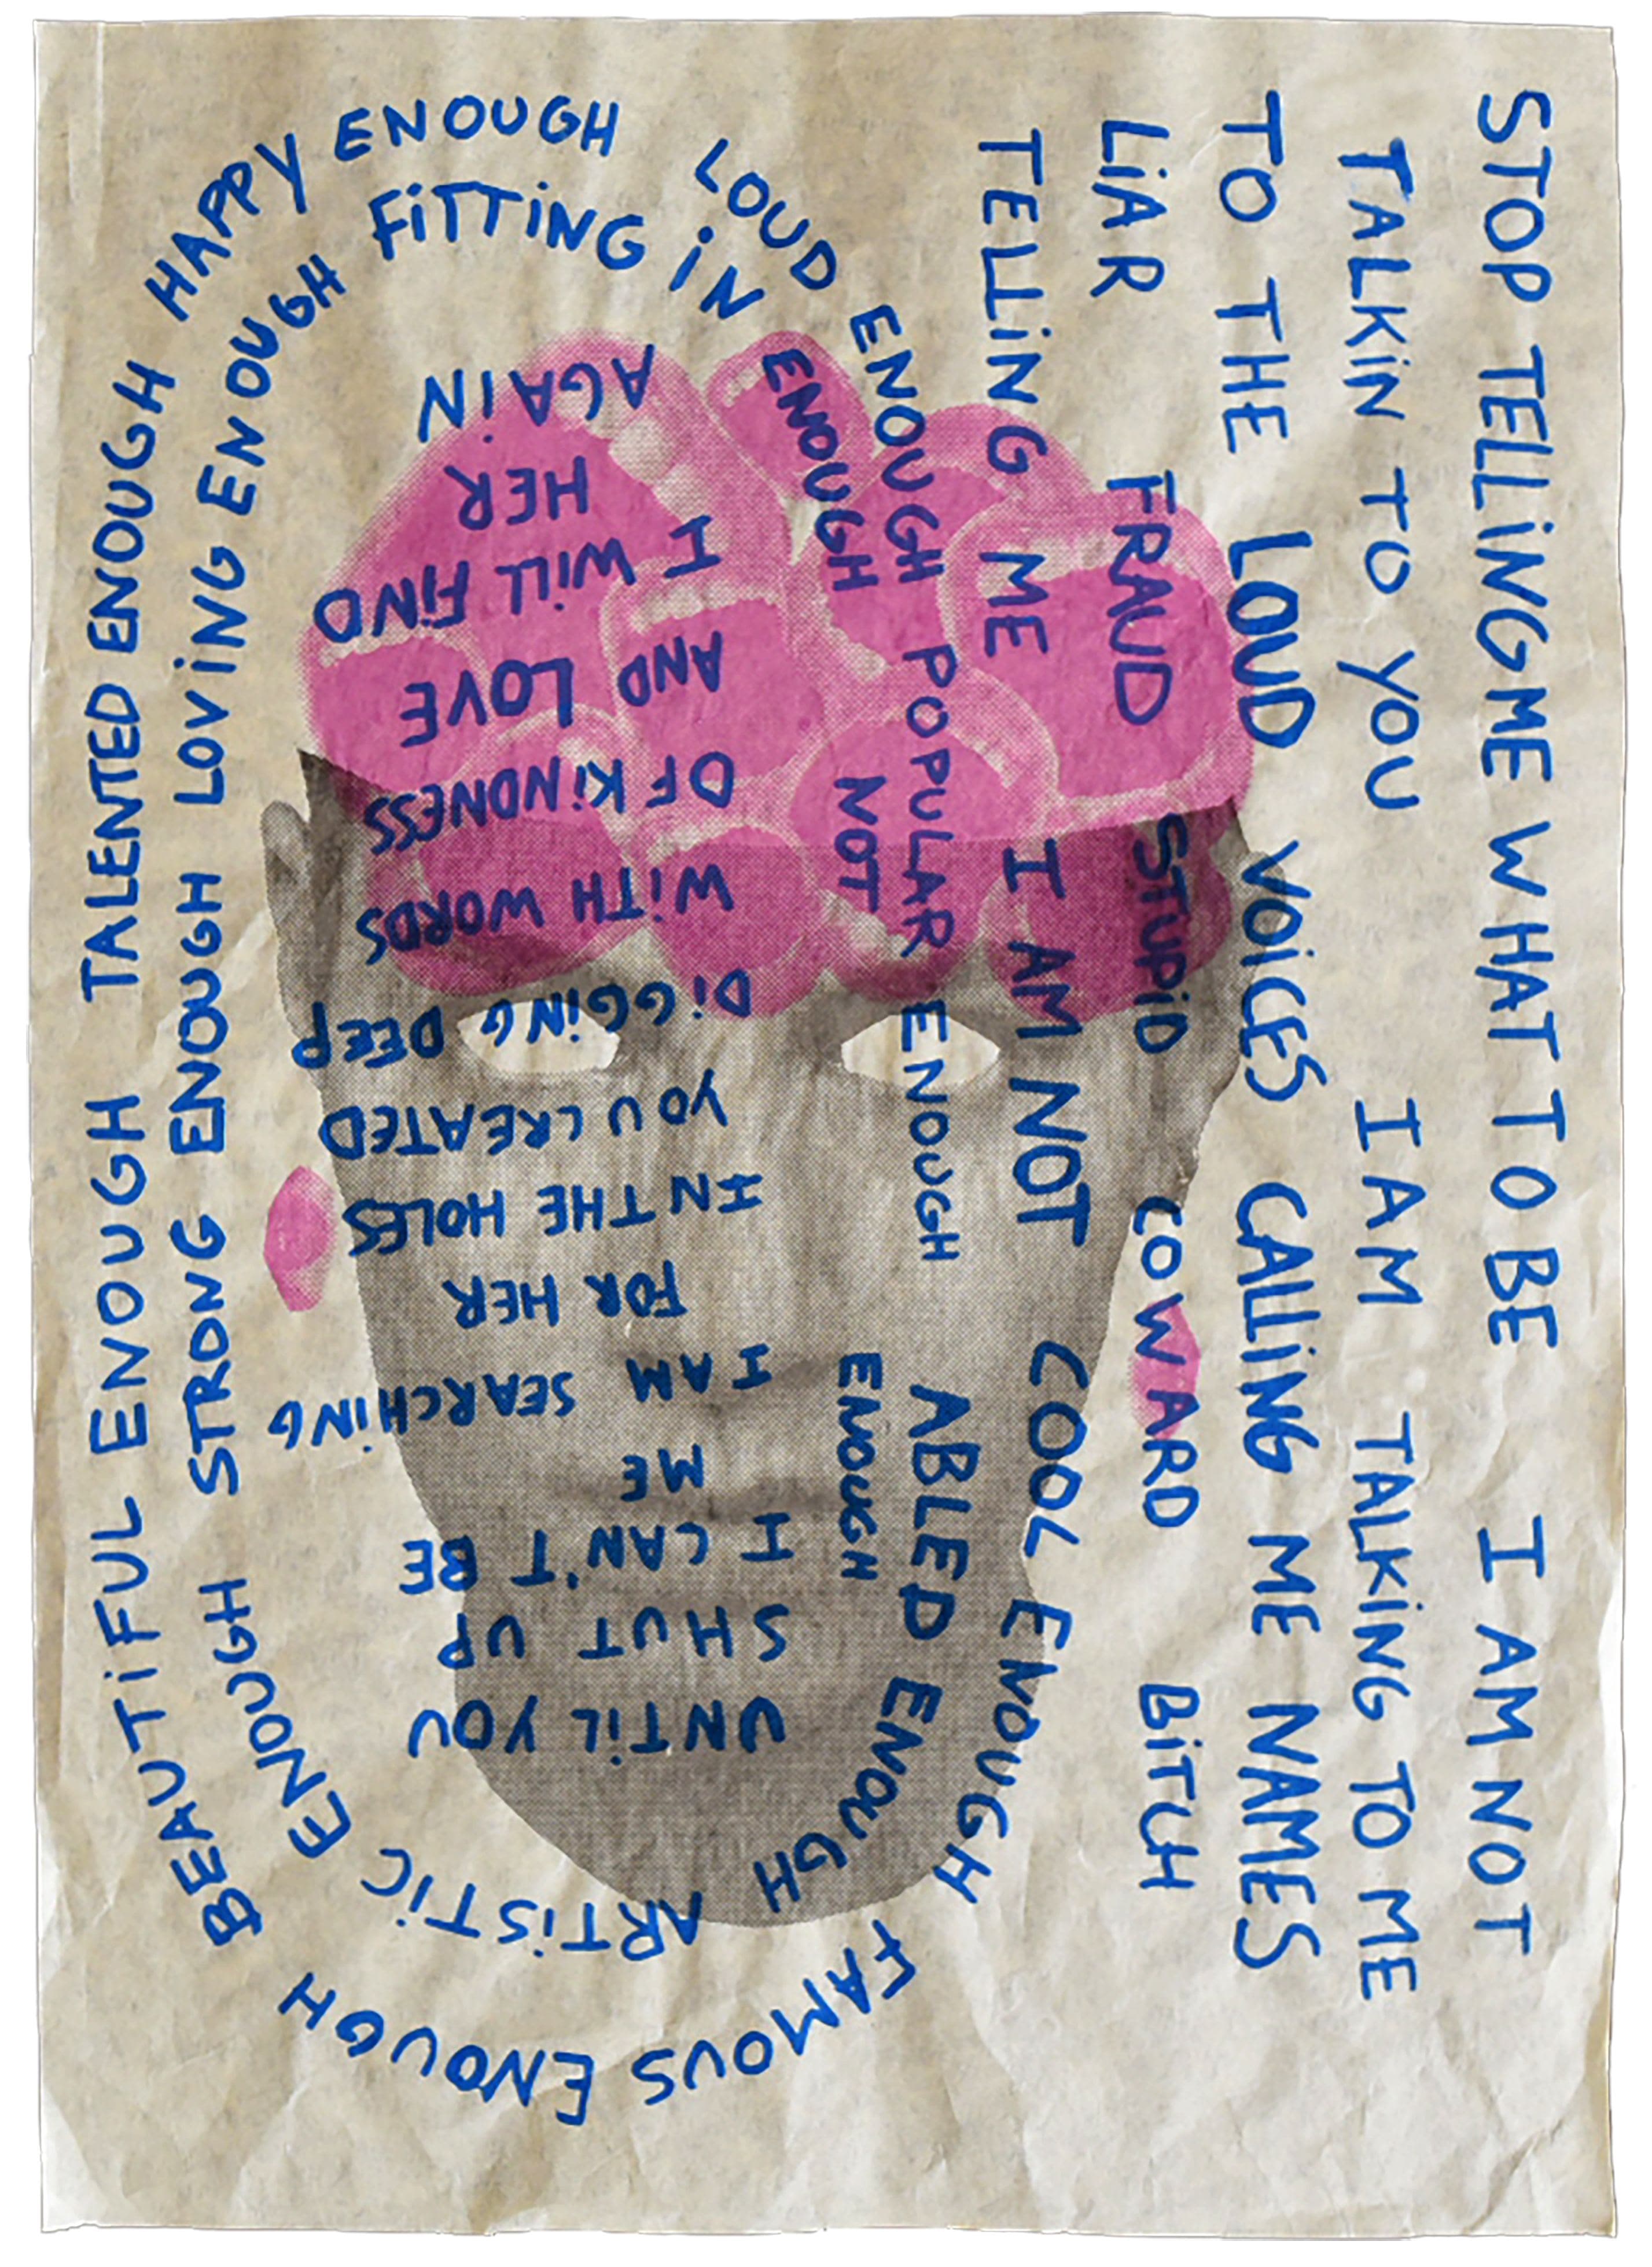 STOP TELLING ME WHAT TO BE I AM NOT
TALKIN TO YOU I AM TALKING TO ME
TO THE LOUD VOICES CALLING ME NAMES
LIAR FRAUD STUPID COWARD BITCH
TELLING ME I AM NOT COOL ENOUGH
FAMOUS ENOUGH
BEAUTIFUL ENOUGH TALENTED ENOUGH
HAPPY ENOUGH
LOUD ENOUGH ENOUGH POPULAR ENOUGH
ABLED ENOUGH
ARTISTIC ENOUGH
STRONG ENOUGH LOVING ENOUGH
FITTING IN ENOUGH
NOT ENOUGH
UNTIL YOU
SHUT UP
I CAN'T BE
ME
I AM SEARCHING
FOR HER
IN THE HOLES
YOU CREATED
DIGGING DEEP
WITH WORDS
OF KINDNESS
AND LOVE
I WILL FIND
HER
AGAIN